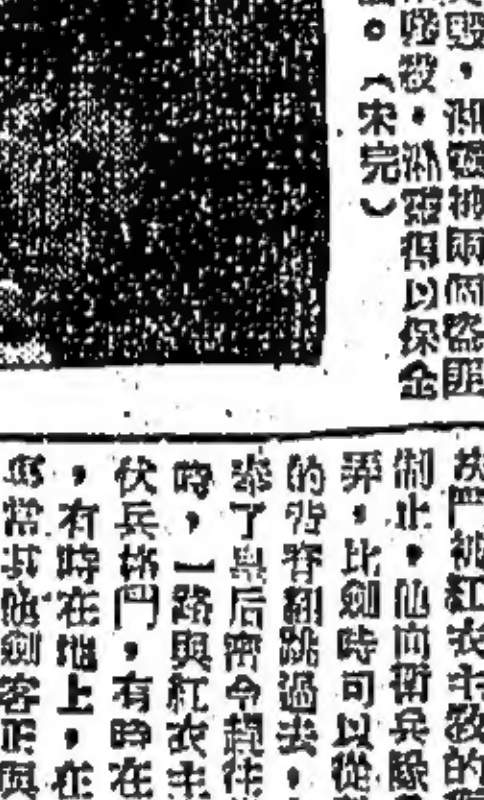 毀,淵靈被兩個盜匪
殺。淵靈得以保全
。(未完)
扶鬥被紅衣主敎的
制止,他向衛兵隊
弄,比劍時可以從
的背脊翻跳過去,
奉了皇后密令趕往
時,一路與紅衣主
伏兵格鬥,有時在
,有時在地上,在
當其他劍客正與